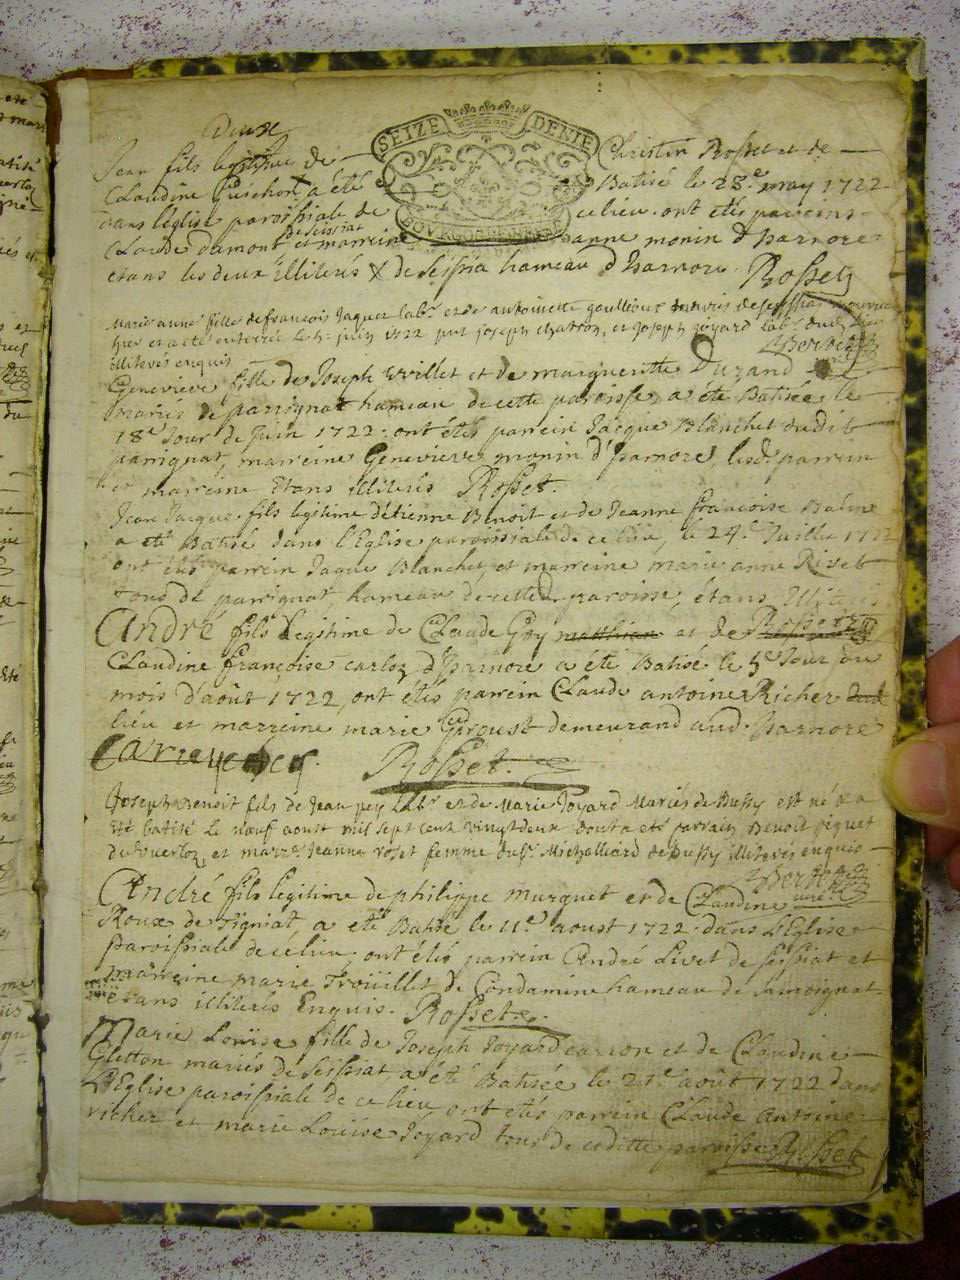 Deux
SEIZE DENIE
BOURGOGNE
Jean fils legitime de Christin Rosset et de
Claudine a été Batisé le 28e may 1722
dans l'église paroissiale de ce lieu. ont etés parreins
Claude Damont de seissiat et marreine anne monin d'Isarnore
etans les deux illiterés X de seissia hameau d'Isarnore. Rosset
Marie anne fille de françois Jaquet labr. et de antoinette mariés de
hier et a eté enterreé le juin 1722 par joseph et Joseph joyard labr. dud. lieu
illiterés enquis
Genevieve fille de Joseph Vuillet et de margueritte Durand
mariés de parrignat hameau de cette paroisse, a été Batisée le
18e Jour de Juin 1722. ont étés parrein Jacque Blanchet dudit
parrignat, marreine Genevieve monin d'Isarnore, lesd. parrein
et marreine Etans illiterés Rosset.
Jean Jacque fils legitime d'étienne Benoit et de Jeanne françoise
a eté Batisé dans l'Eglise paroissiale de ce lieu, le 24e Juillet 1722
ont etés parrein Jaque Blanchet, et marreine marie anne
tous de parrignat, hameau de cette paroisse, étans
André fils legitime de Claude Goy et de Rosset
Claudine françoise carloz d'Isarnore a été Batisé le 5e Jour du
mois d'août 1722, ont étés parrein Claude antoine Richer
lieu et marreine marie demeurand aud. Isarnore
Rosset.
Joseph benoit fils de Jean pey labr. et de Marie Joyard Mariés de Bussy est né & a
eté batisé le neuf aoust mil sept cent vingt deux dont a eté parrain Benoit
et marre. Jeanne roset femme du Sr. Michalliard de Bussy illiterés enquis
André fils legitime de philippe murguet et de Claudine
Roux de Tigniat, a eté Batisé le 11e aoust 1722 dans L'Eglise
paroissiale de ce lieu ont étés parrein André Livet de seissiat et
marreine marie Troüillet de Condamine hameau de samoignat
étans illiterés Enquis. Rosset.
Marie Loüise fille de Joseph Joyard carron et de Claudine
Gletton mariés de seissiat a été Batisée le 21e août 1722 dans
L'Eglise paroissiale de ce lieu ont etés parrein Claude Antoine
richer et marie Loüise Joyard tous de ceditte paroisse Rosset